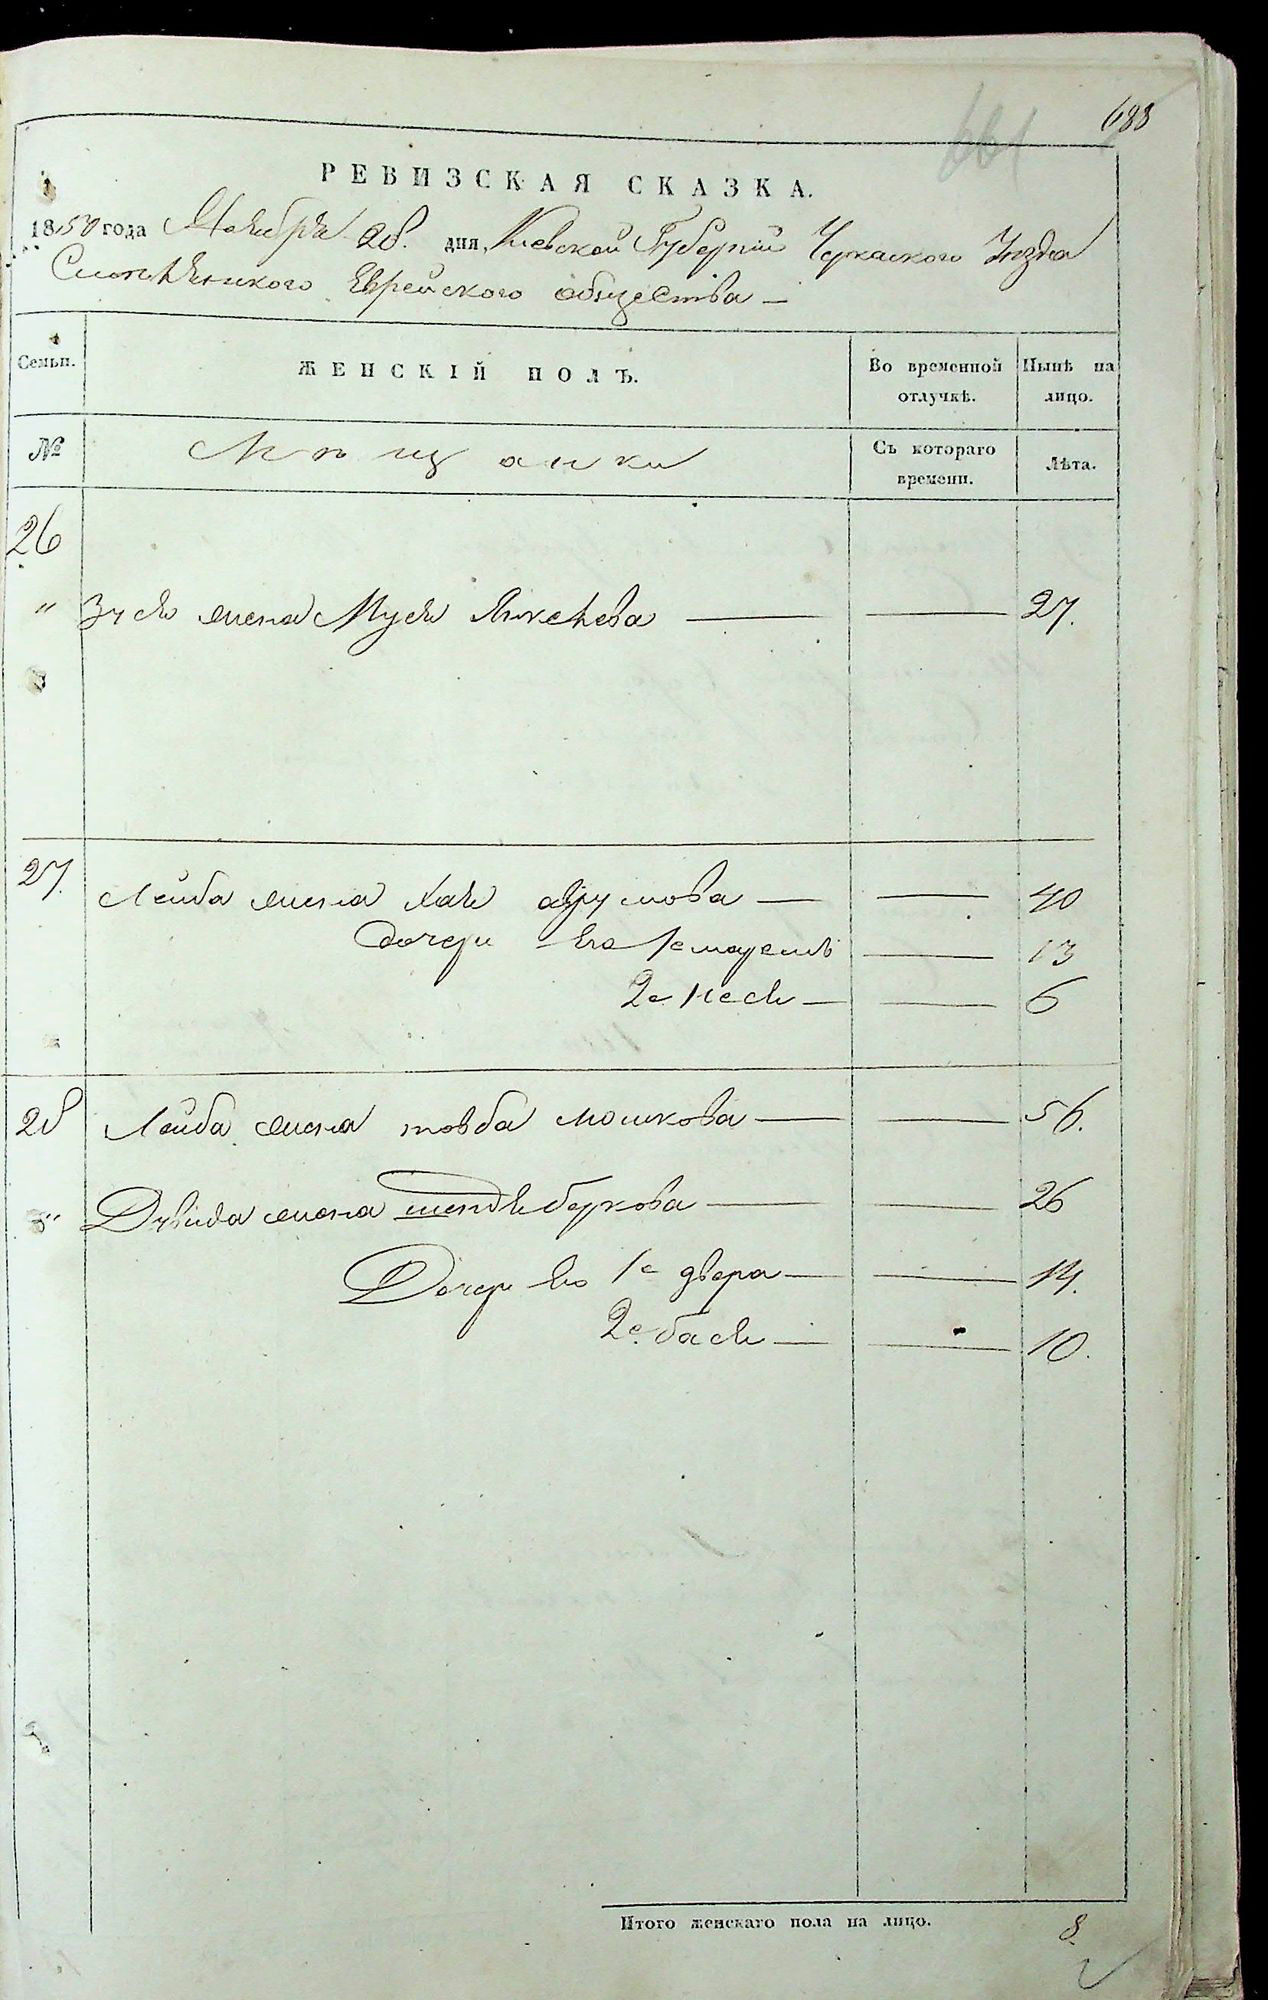 688
661
РЕВИЗСКАЯ СКАЗКА.
1850 года Ноября 28. дня, Киевской Губерніи Черкаского Уѣзда
Смѣлянского Еврейского общества —
Семьи. ЖЕНСКІЙ ПОЛЪ. Во временной отлучкѣ. Нынѣ на лицо.
№ Мѣщанки Съ котораго времени. Лѣта.
26
" Зуся жена Муся — — 27.
27. Лейба жена Хая — — 40
дочери его 1е — 13
2е Песя — — 6
28 Лейба жена товба мошкова — — 56.
" Давида жена шендля беркова — — 26
Дочери его 1е двера — — 14.
2е бася — — 10.
Итого женскаго пола на лицо. 8.